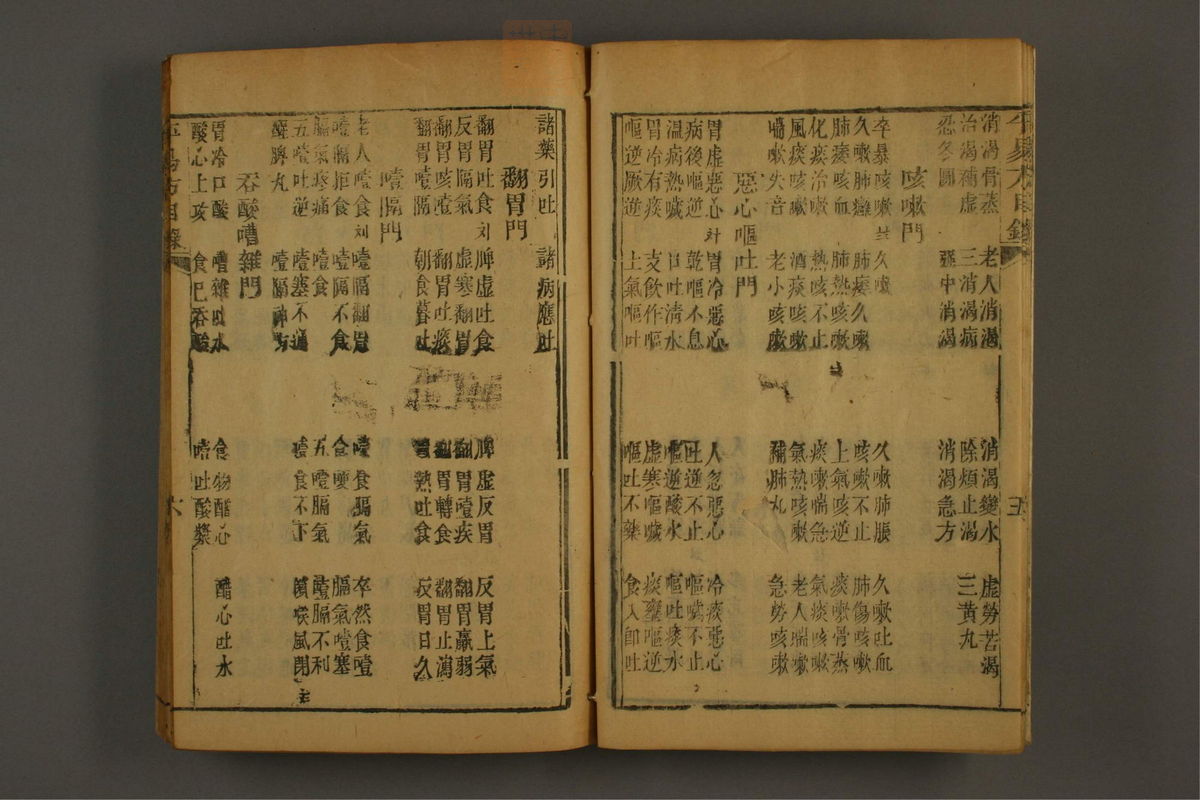 消渴骨蒸　老人消渴　消渴變水　虛勞苦渴
治渴補虛　三消渴病　除煩止渴　三黃丸
忍冬圓　強中消渴　消渴急方
咳嗽門
卒暴咳嗽　久嗽　久嗽肺脹　久嗽吐血
久嗽肺癰　肺痿久嗽　咳嗽不止　肺傷咳嗽
肺痿咳血　肺熱咳嗽　上氣咳逆　痰嗽骨蒸
化痰治嗽　熱咳不止　痰嗽喘急　氣痰咳嗽
風痰咳嗽　酒痰咳嗽　氣熱咳嗽　老人喘嗽
喘嗽失音　老小咳嗽　補肺丸　急勞咳嗽
惡心嘔吐門
胃虛惡心　胃冷惡心　人忽惡心　冷痰惡心
病後嘔逆　乾嘔不息　吐逆不止　嘔噦不止
溫病熱噦　口吐清水　嘔逆酸水　嘔吐痰水
胃冷有痰　支飲作嘔　虛寒嘔噦　痰壅嘔逆
嘔逆厥逆　上氣嘔吐　嘔吐不藥　食入即吐
諸藥引吐　諸病應吐
翻胃門
翻胃吐食　脾虛吐食　脾虛反胃　反胃上氣
反胃隔氣　虛寒翻胃　翻胃噎疾　翻胃羸弱
翻胃咳噎　翻胃吐痰　翻胃轉食　翻胃止瀉
翻胃噎隔　朝食暮吐　胃熱吐食　反胃日久
噎隔門
老人噎食　噎隔翻胃　噎食膈氣　卒然食噎
噎膈拒食　噎隔不食　食哽　膈氣噎塞
膈氣疼痛　噎食　五噎膈氣　噎膈不利
五噎吐逆　噎塞不通　噎食不下　風閉
脾丸　噎隔神方
吞酸嘈雜門
胃冷口酸　嘈雜吐水　食物醋心　醋心吐水
酸心上攻　食已吞酸　噎吐酸漿